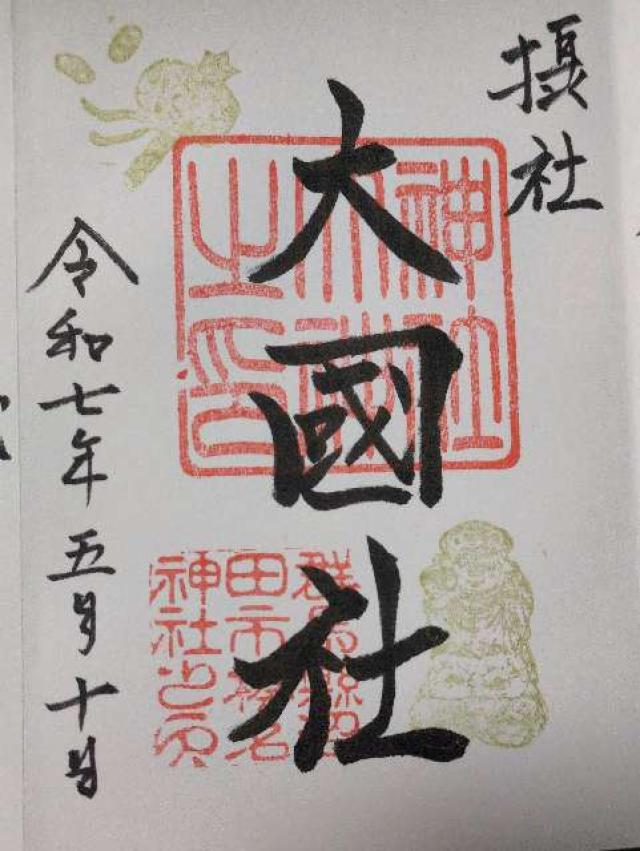 摂社
大國社
令和七年五月十日
神社
之印
群馬縣沼
田市榛名
神社之印